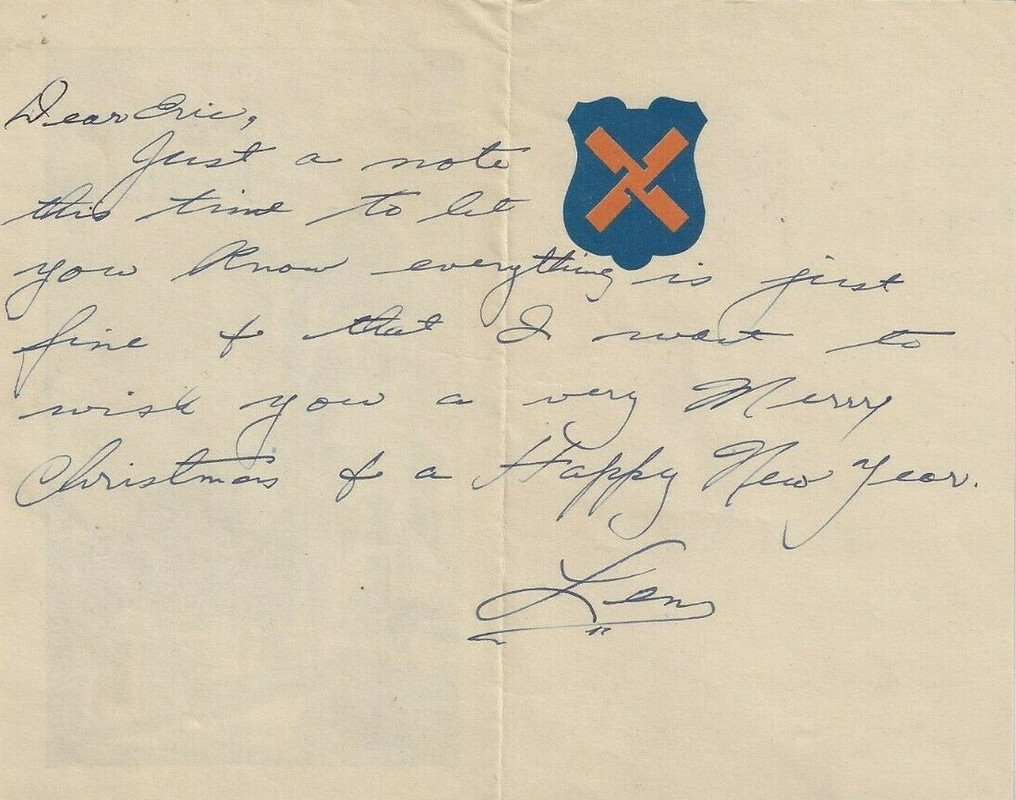 Dear Eric,
Just a note
this time to let
you know everything is just
fine & that I want to
wish you a very Merry
Christmas & a Happy New Year.
Len